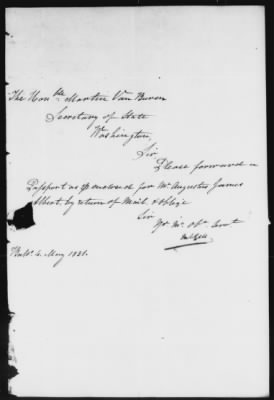 The Hon.ble Martin Van Buren
Secretary of State
Washington,
Sir
Please forward a
Passport as p enclosed for Mr Augustus James
Albert, by return of Mail & oblige
Sir
Yr Mo. Obt. Servt
Balto. 4. May 1831.